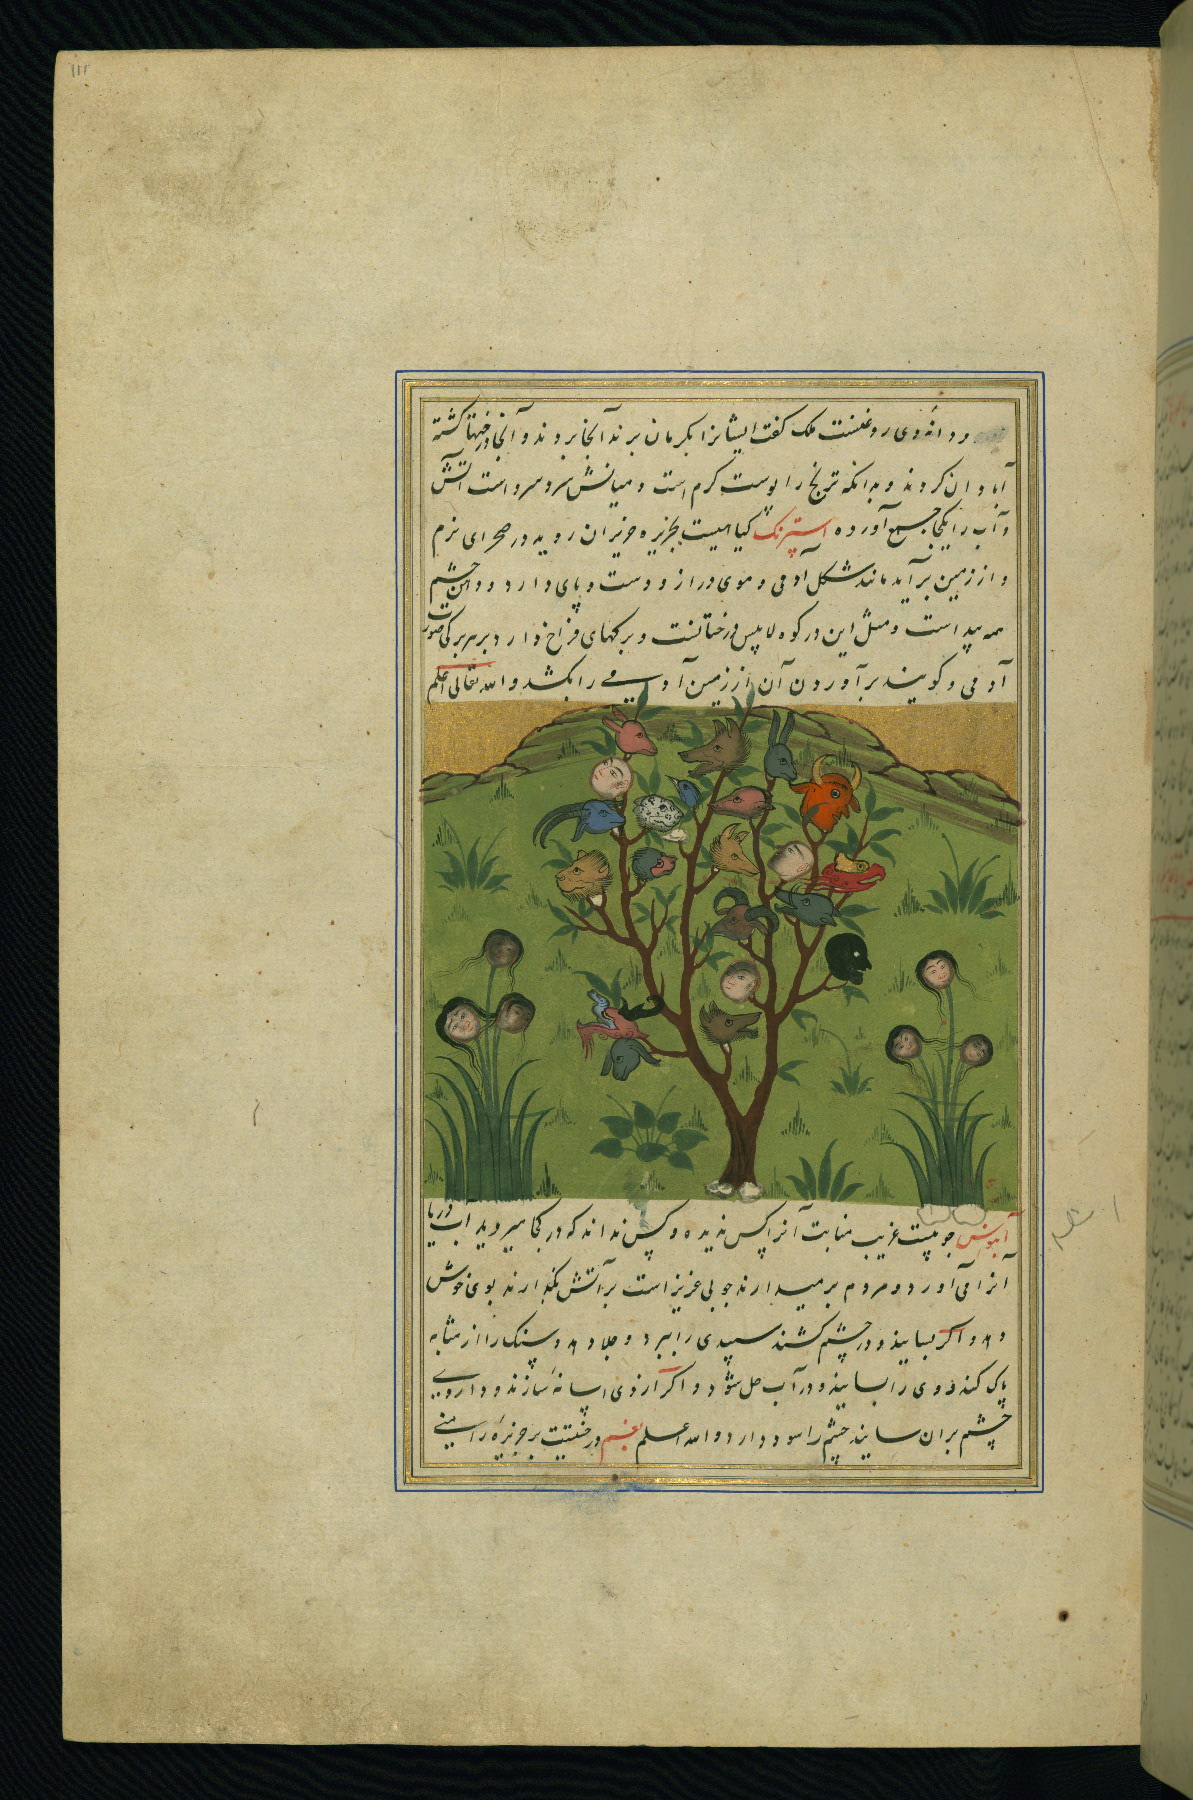 ۱۱۲
و دانه وی روغنست ملک گفت ایشانرا بکرمان برند آنجا بردند و آنجا درختها کشته
آبادان کردند و بدانکه ترنج را پوست گرم است و میانش سرد سرد است آتش
و آب را یکجا جمع آورده استرنک کیاهیست بجزیره خیزران روید در صحرای نرم
و از زمین برآید مانند شکل آدمی و موی دراز و دست و پای دارد و چشم
همه پیداست و مثل این در کوه درختانست و برکهای فراخ دارد بر هر برکی صورت
آدمی و کویند برآوردن آن از زمین آدمی را بکشد و الله تعالی اعلم
آبنوس چوبیست غریب منابت آنرا کس ندیده و کس نداند که در کجا میروید آب دریا
آنرا می آورد و مردم برمیدارند چوبی عزیز است بر آتش بگذارند بوی خوش
دهد و اکر بسایند و در چشم کشند سپیدی را ببرد و جلا دهد و سنک را از مثانه
پاک کند و وی را بسایند و در آب حل شود و اکر از وی سازند و داروی
چشم بران سایند چشم را سود دارد و الله اعلم بقم درختیست بر جزیره